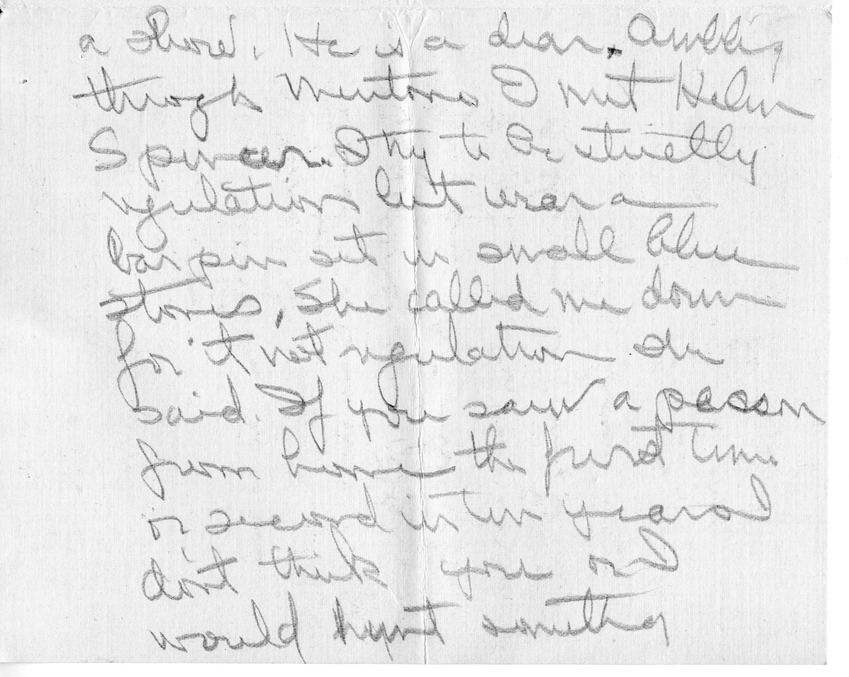 a show. He is a dear. Ambling
through Mentone I met Helen
Spencer. I try to be strictly
regulation but wear a
bar pin set in small blue
stones. She called me down
for it not regulation she
said. If you saw a person
from home the first time
or second in ten years I
don't think you or I
would hunt something